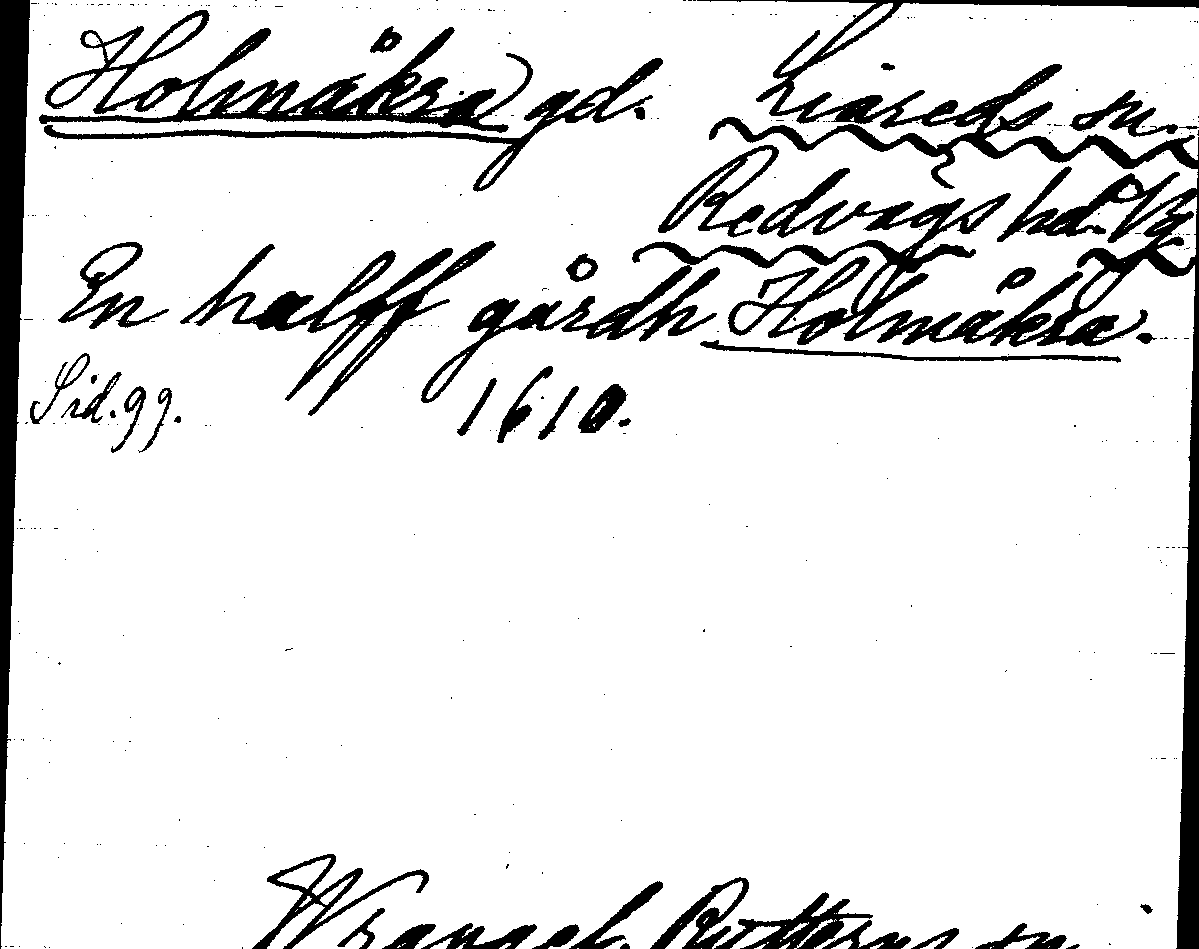 Holmåkra) gd. Liareds sn.
Redvägs hd. Vg
En halff gårdh Holmåkra.
Sid. 99. 1610.
Wrangel,